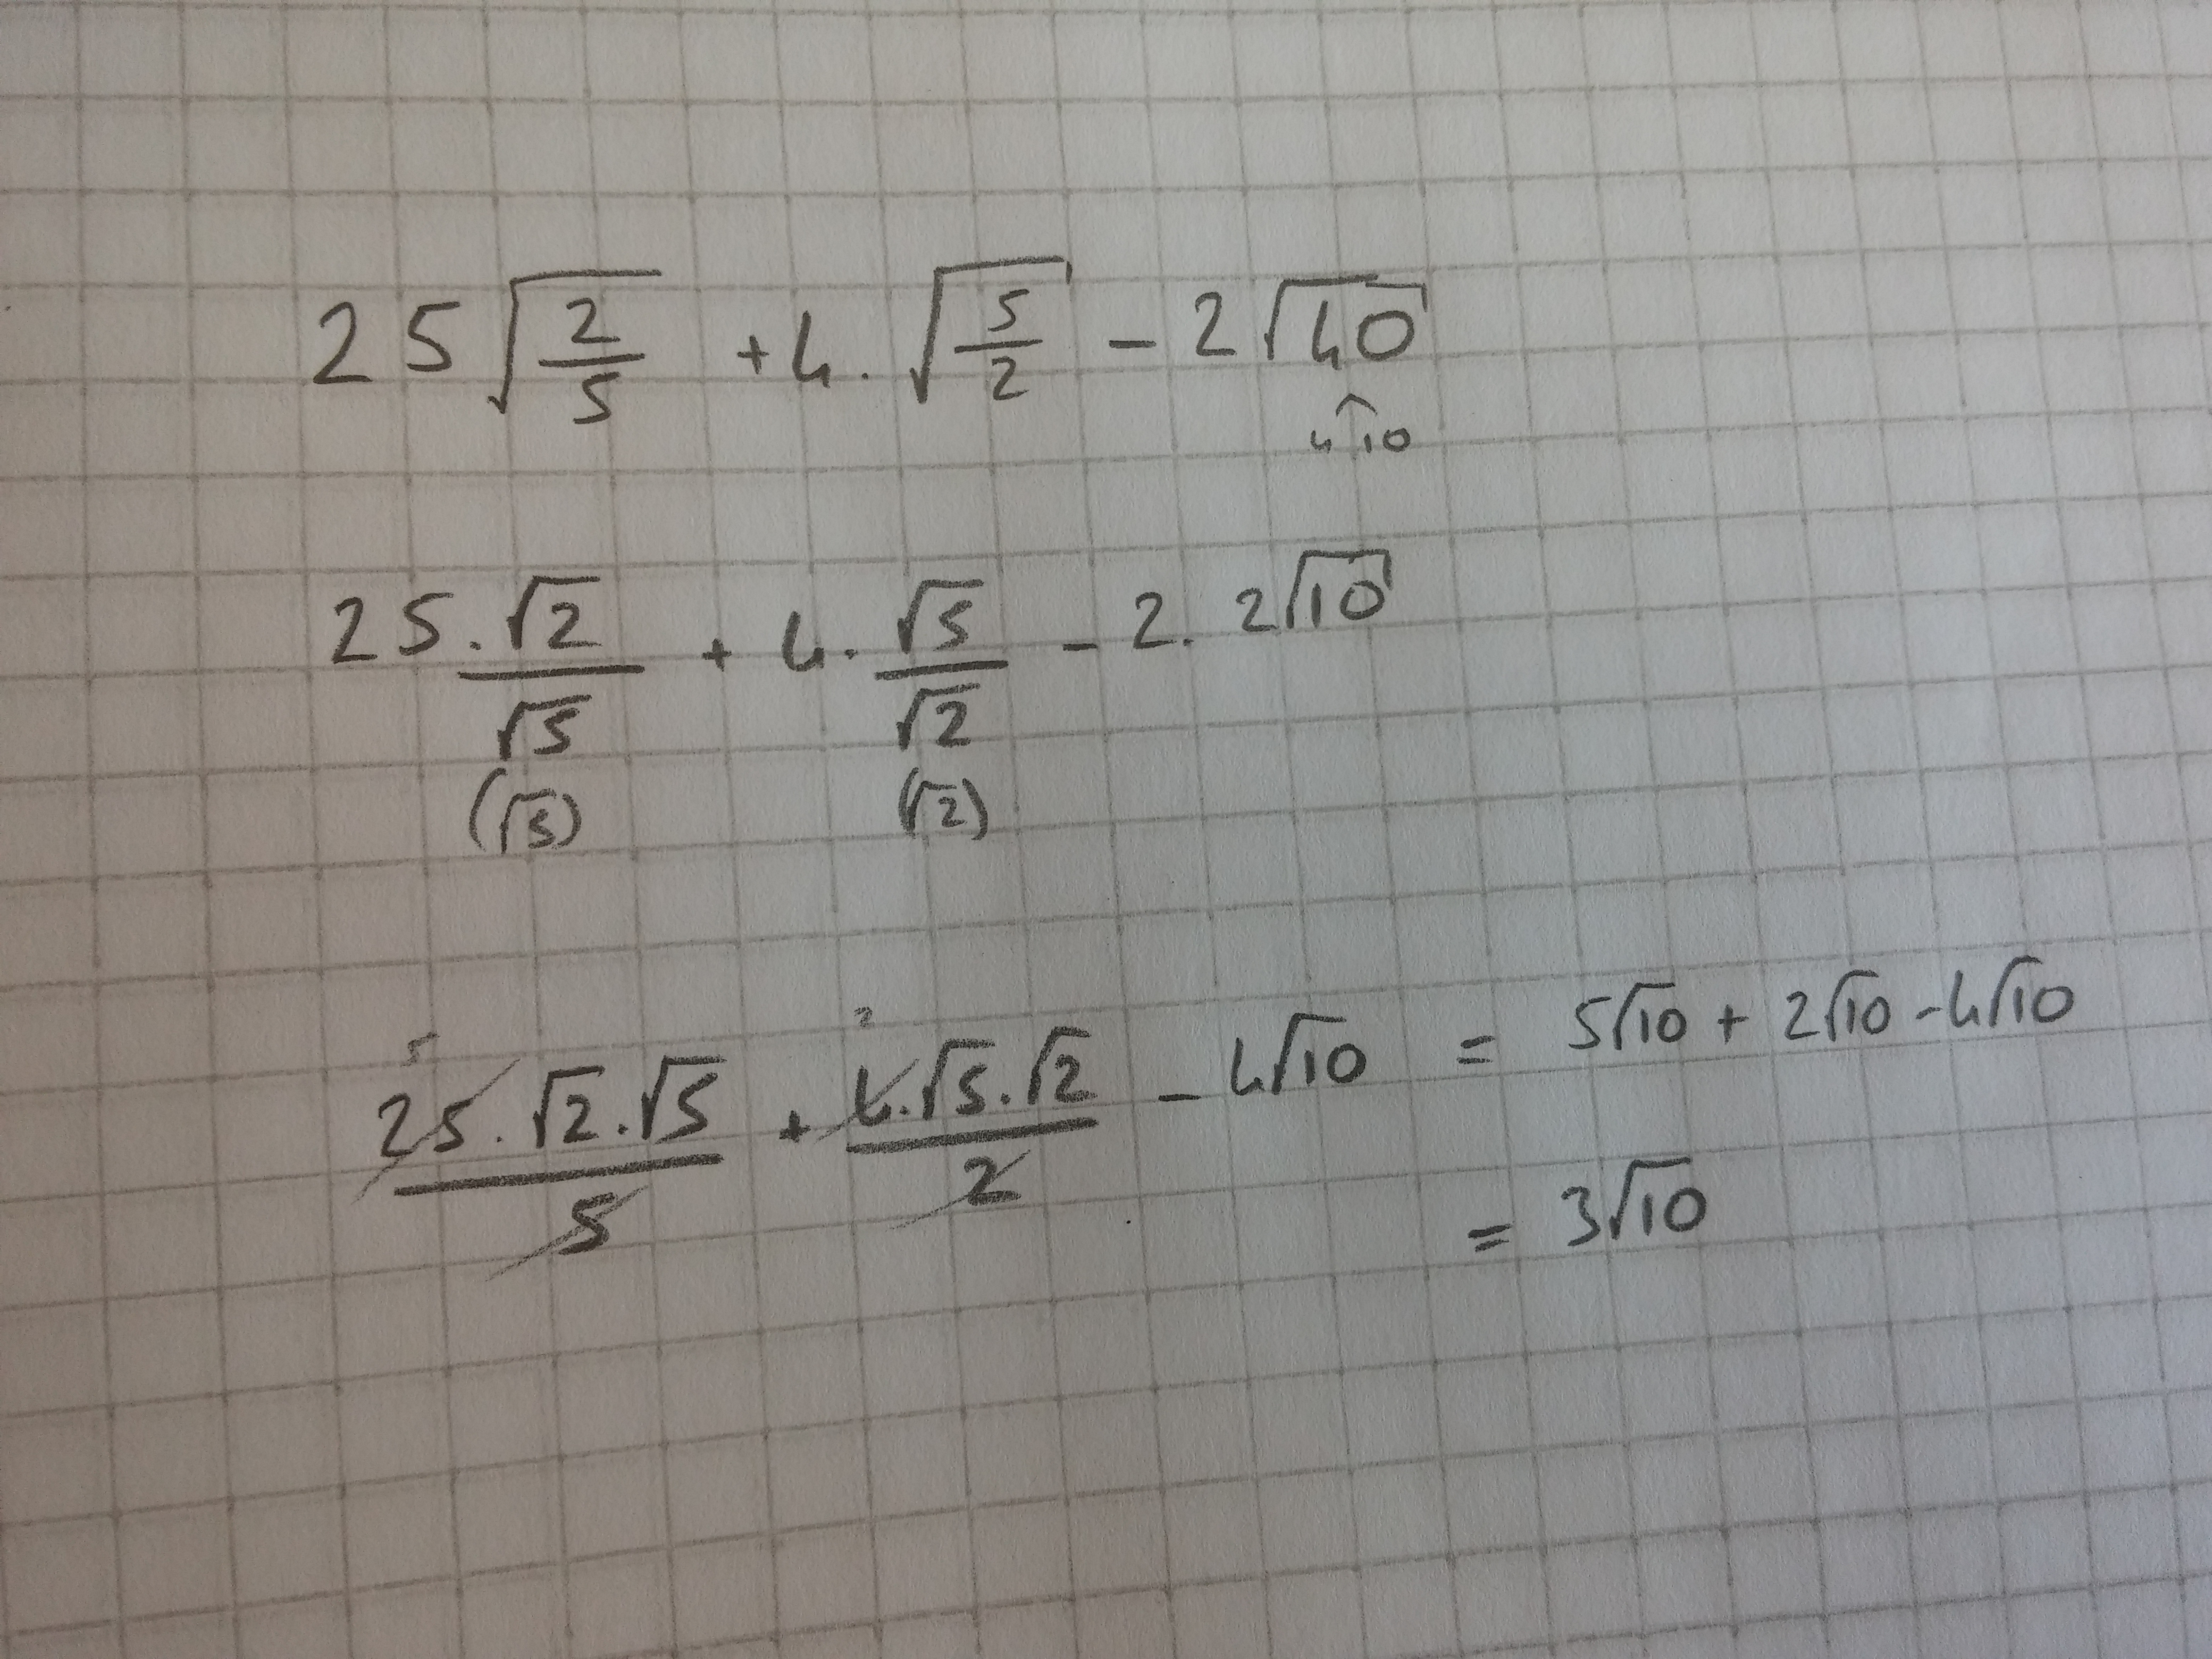 25√(2/5) + 4·√(5/2) - 2√40
4 10
25·√2/√5 + 4·√5/√2 - 2·2√10
(√5) (√2)
5 2
25·√2·√5/5 + 4·√5·√2/2 - 4√10 = 5√10 + 2√10 - 4√10
= 3√10